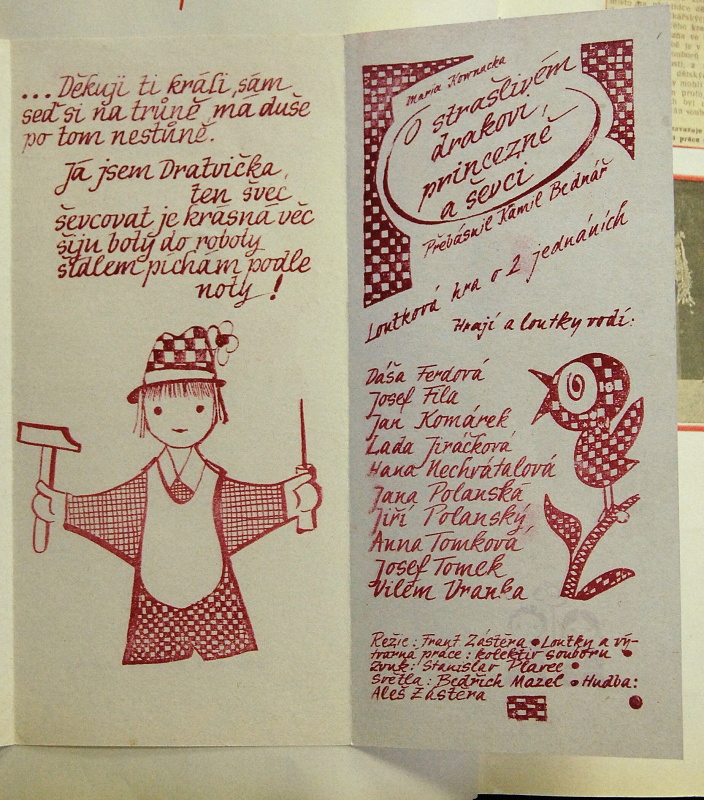 ...Děkuji ti králi, sám
seď si na trůně, má duše
po tom nestůně.
Já jsem Dratvička,
ten švec
ševcovat je krásná věc
šiju boty do roboty
šídlem píchám podle
noty!
Maria Kownacka
O strašlivém
drakovi,
princezně
a ševci
Přebásnil Kamil Bednář
Loutková hra o 2 jednáních
Hrají a loutky vodí:
Dáša Ferdová
Josef Fila
Jan Komárek
Lada Jiráčková
Hana Nechvátalová
Jana Polanská
Jiří Polanský
Anna Tomková
Josef Tomek
Vilém Vranka
Režie: Frant Zástěra • Loutky a vý-
tvarná práce: kolektiv souboru •
Zvuk: Stanislav Plavec •
Světla: Bedřich Mazel • Hudba:
Aleš Zástěra